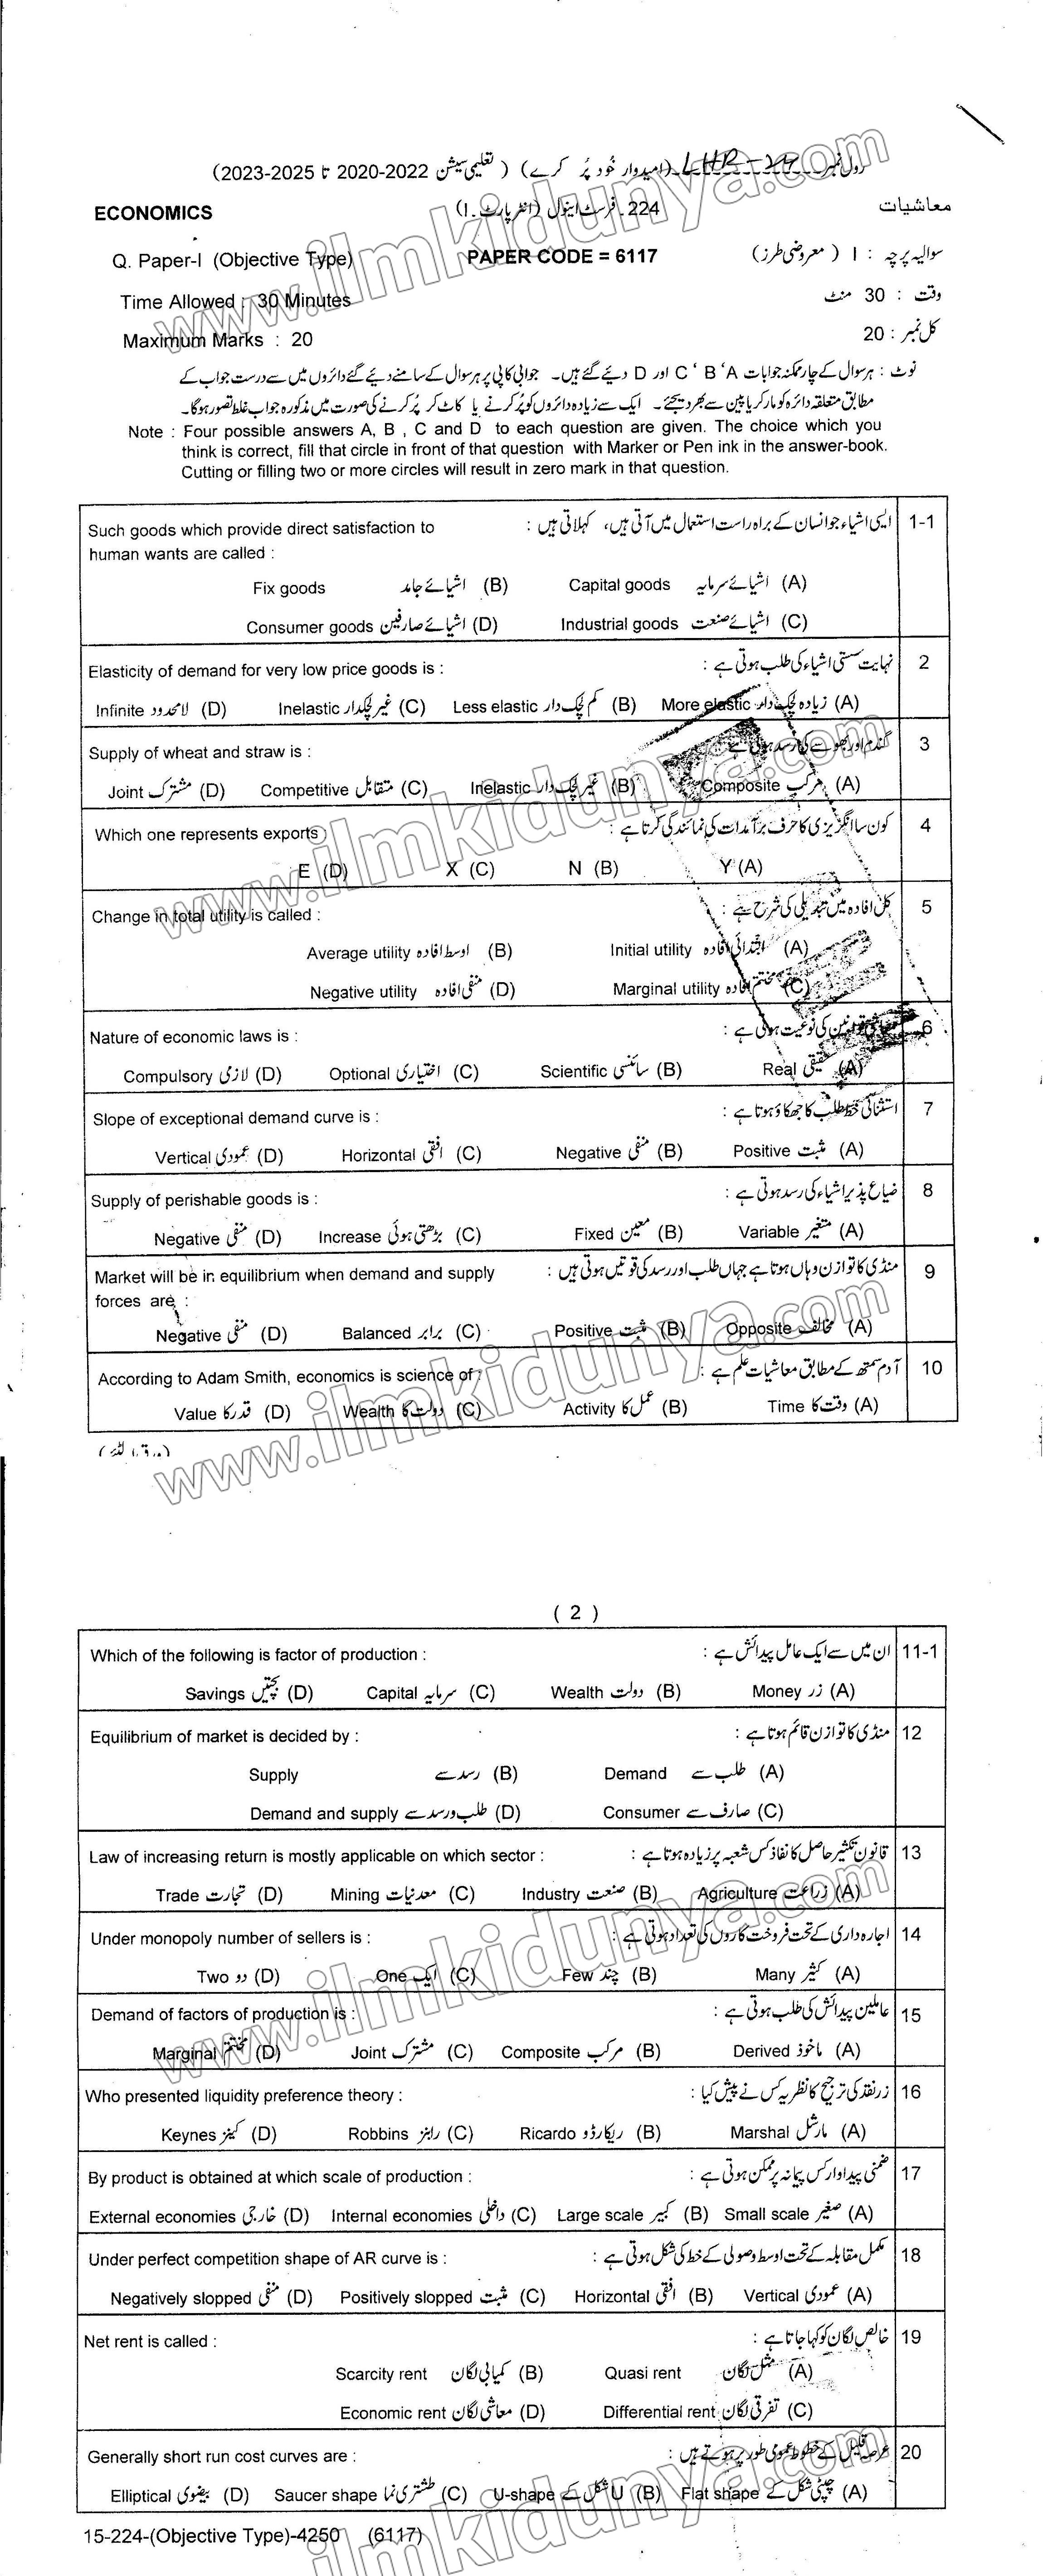 رول نمبر LHR-24 (امیدوار خُود پُر کرے) (تعلیمی سیشن 2022-2020 تا 2025-2023)
ECONOMICS 224۔ فرسٹ اینول (انٹر پارٹ۔ I) معاشیات
Q. Paper-I (Objective Type) PAPER CODE = 6117 سوالیہ پرچہ : I (معروضی طرز)
Time Allowed : 30 Minutes وقت : 30 منٹ
Maximum Marks : 20 کل نمبر : 20
نوٹ : ہر سوال کے چار ممکنہ جوابات A، B، C اور D دیئے گئے ہیں۔ جوابی کاپی پر ہر سوال کے سامنے دیئے گئے دائروں میں سے درست جواب کے
مطابق متعلقہ دائرہ کو مارکر یا پین سے بھر دیجئے۔ ایک سے زیادہ دائروں کو پُر کرنے یا کاٹ کر پُر کرنے کی صورت میں مذکورہ جواب غلط تصور ہوگا۔
Note : Four possible answers A, B , C and D to each question are given. The choice which you
think is correct, fill that circle in front of that question with Marker or Pen ink in the answer-book.
Cutting or filling two or more circles will result in zero mark in that question.
Such goods which provide direct satisfaction to ایسی اشیاء جو انسان کے براہ راست استعمال میں آتی ہیں، کہلاتی ہیں : 1-1
human wants are called :
Fix goods اشیائے جامد (B) Capital goods اشیائے سرمایہ (A)
Consumer goods اشیائے صارفین (D) Industrial goods اشیائے صنعت (C)
Elasticity of demand for very low price goods is : نہایت سستی اشیاء کی طلب ہوتی ہے : 2
Infinite لامحدود (D) Inelastic غیر لچکدار (C) Less elastic کم لچک دار (B) More elastic زیادہ لچک دار (A)
Supply of wheat and straw is : گندم اور بھوسے کی رسد ہوتی ہے 3
Joint مشترک (D) Competitive متقابل (C) Inelastic غیر لچک دار (B) Composite مرکب (A)
Which one represents exports کون سا انگریزی کا حرف برآمدات کی نمائندگی کرتا ہے : 4
E (D) X (C) N (B) Y (A)
Change in total utility is called : کل افادہ میں تبدیلی کی شرح ہے : 5
Average utility اوسط افادہ (B) Initial utility ابتدائی افادہ (A)
Negative utility منفی افادہ (D) Marginal utility مختتم افادہ (C)
Nature of economic laws is : قوانین کی نوعیت ہوتی ہے : 6
Compulsory لازمی (D) Optional اختیاری (C) Scientific سائنسی (B) Real حقیقی (A)
Slope of exceptional demand curve is : استثنائی خط طلب کا جھکاؤ ہوتا ہے : 7
Vertical عمودی (D) Horizontal افقی (C) Negative منفی (B) Positive مثبت (A)
Supply of perishable goods is : ضیاع پذیر اشیاء کی رسد ہوتی ہے : 8
Negative منفی (D) Increase بڑھتی ہوئی (C) Fixed معین (B) Variable متغیر (A)
Market will be in equilibrium when demand and supply منڈی کا توازن وہاں ہوتا ہے جہاں طلب اور رسد کی قوتیں ہوتی ہیں : 9
forces are :
Negative منفی (D) Balanced برابر (C) Positive مثبت (B) Opposite مخالف (A)
According to Adam Smith, economics is science of : آدم سمتھ کے مطابق معاشیات علم ہے : 10
Value قدر کا (D) Wealth دولت کا (C) Activity عمل کا (B) Time وقت کا (A)
( 2 )
Which of the following is factor of production : ان میں سے ایک عامل پیدائش ہے : 11-1
Savings بچتیں (D) Capital سرمایہ (C) Wealth دولت (B) Money زر (A)
Equilibrium of market is decided by : منڈی کا توازن قائم ہوتا ہے : 12
Supply رسد سے (B) Demand طلب سے (A)
Demand and supply طلب و رسد سے (D) Consumer صارف سے (C)
Law of increasing return is mostly applicable on which sector : قانون تکثیر حاصل کا نفاذ کس شعبہ پر زیادہ ہوتا ہے : 13
Trade تجارت (D) Mining معدنیات (C) Industry صنعت (B) Agriculture زراعت (A)
Under monopoly number of sellers is : اجارہ داری کے تحت فروخت کاروں کی تعداد ہوتی ہے : 14
Two دو (D) One ایک (C) Few چند (B) Many کثیر (A)
Demand of factors of production is : عاملین پیدائش کی طلب ہوتی ہے : 15
Marginal مختتم (D) Joint مشترک (C) Composite مرکب (B) Derived ماخوذ (A)
Who presented liquidity preference theory : زر نقد کی ترجیح کا نظریہ کس نے پیش کیا : 16
Keynes کینز (D) Robbins رابنز (C) Ricardo ریکارڈو (B) Marshal مارشل (A)
By product is obtained at which scale of production : ضمنی پیداوار کس پیمانہ پر ممکن ہوتی ہے : 17
External economies خارجی (D) Internal economies داخلی (C) Large scale کبیر (B) Small scale صغیر (A)
Under perfect competition shape of AR curve is : مکمل مقابلہ کے تحت اوسط وصولی کے خط کی شکل ہوتی ہے : 18
Negatively slopped منفی (D) Positively slopped مثبت (C) Horizontal افقی (B) Vertical عمودی (A)
Net rent is called : خالص لگان کو کہا جاتا ہے : 19
Scarcity rent کمیابی لگان (B) Quasi rent مثل لگان (A)
Economic rent معاشی لگان (D) Differential rent تفرقی لگان (C)
Generally short run cost curves are : عرصہ قلیل کے خطوط عمومی طور پر ہوتے ہیں : 20
Elliptical بیضوی (D) Saucer shape طشتری نما (C) U-shape U شکل کے (B) Flat shape چپٹی شکل کے (A)
15-224-(Objective Type)-4250 (6117)
www.ilmkidunya.com
www.ilmkidunya.com
www.ilmkidunya.com
www.ilmkidunya.com